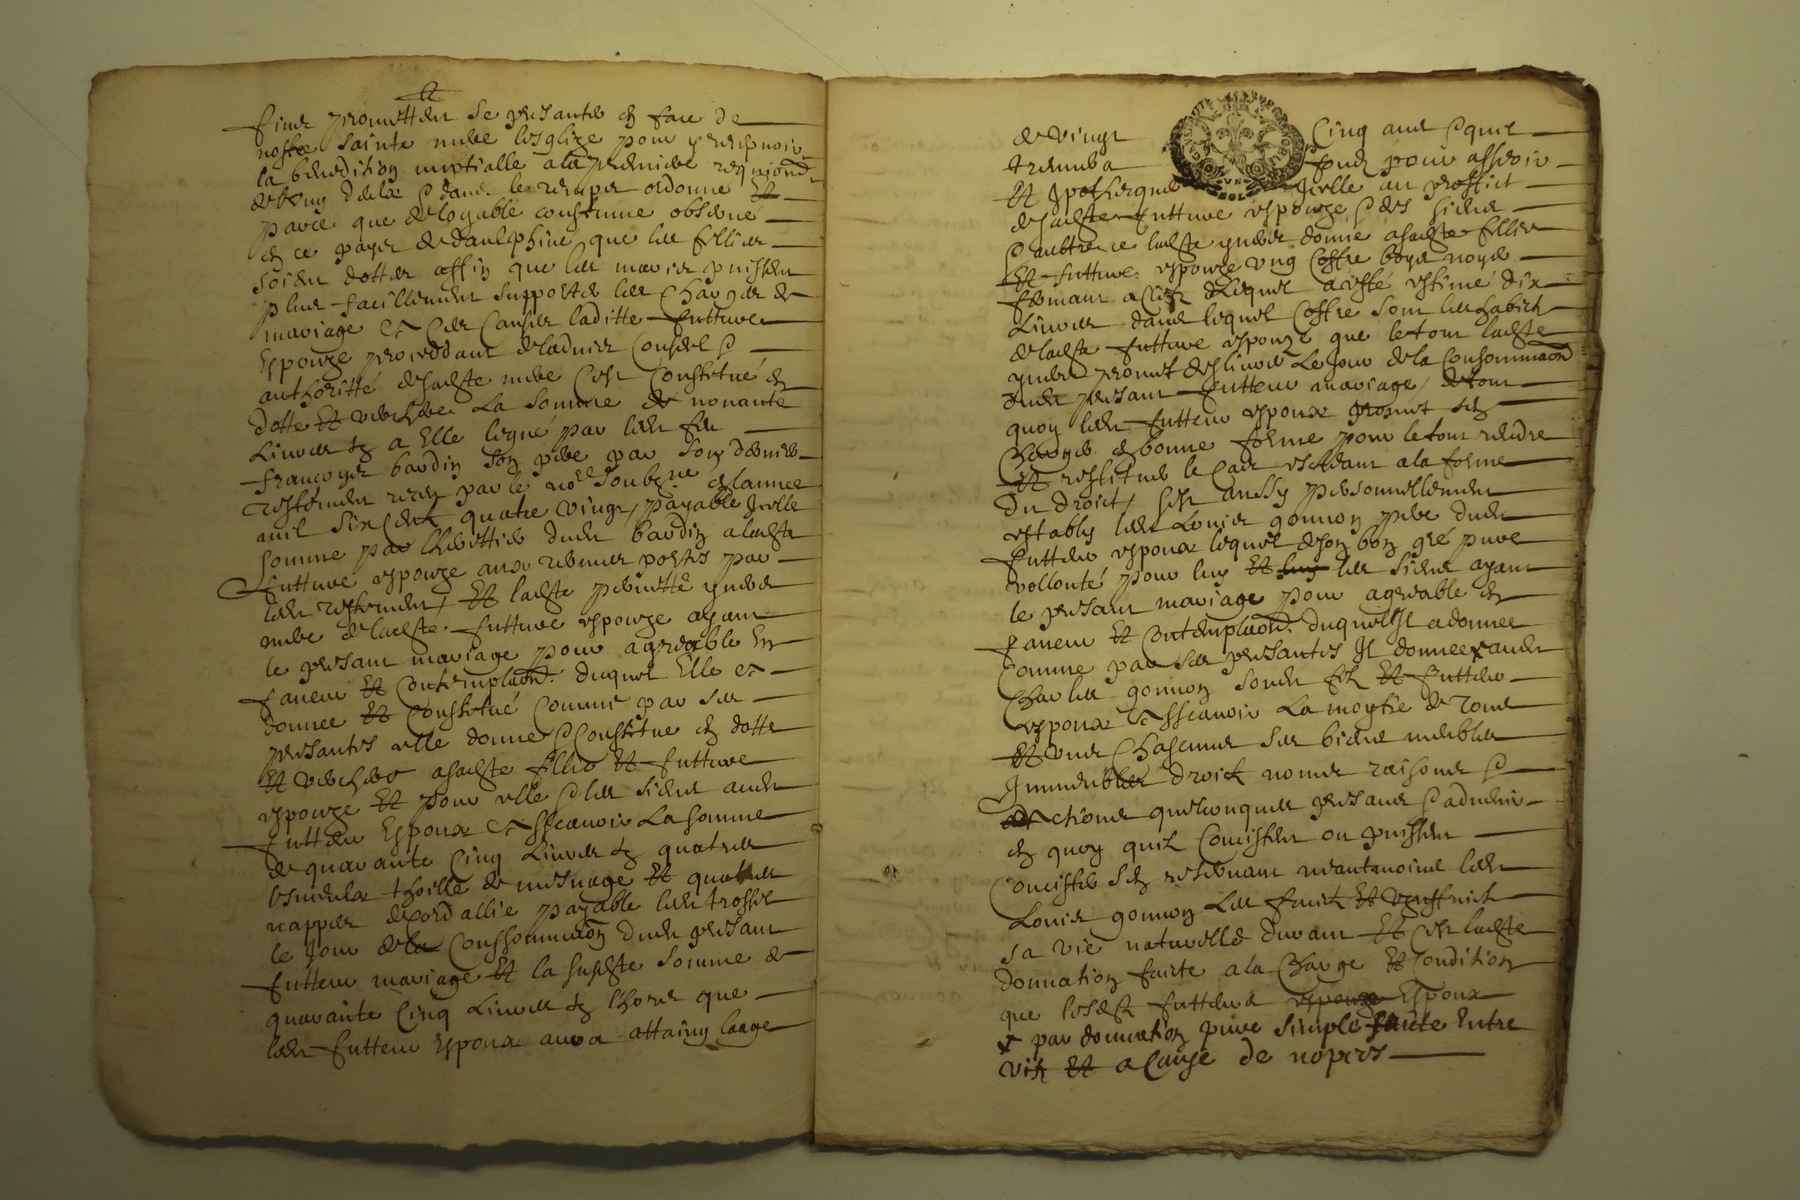 &
fiver promettent se presanter en face de
nostre sainte mere lesglize pour y recepvoir
la benedition nuptialle ala premiere requiond
de lung deulx & dans le temps ordonne Et
parce que de loyable coustume observé
en ce pays de daulphiné que les fillies
soient dottes affin que les maries puissent
plus facillement supporter les charges de
mariage Et Ces Causes laditte future
Espouze proceddant de ladvis Conseil &
authoritté de sadte mere sest Constitué en
dotte Et verchere La somme de nonante
Livres tz a Elle legué par ledit feu
francoys bardin son pere par son dernier
testement receu par le nore soubzne en lannee
mil six Cent quatre vingt, payable Icelle
somme par lherettier dudit bardin a ladte
future espouze aux termes portes par
ledit testement, Et ladte perrette
mere de ladte future espouze ayant
le presant mariage pour agreable En
faveur Et Contemplaon duquel Elle a
donné Et Constitué Comme par ses
presantes elle donne & Constitue en dotte
Et verchere a sadte fillie Et future
espouze Et pour elle & les siens audit
futteur Espoux Assavoir La somme
de quarante Cinq Livres tz quatre
thoille de mesnage Et quatre
nappes payable ledit trossel
le jour de la Consommaon dudit presant
futteur mariage Et la susdte somme de
quarante Cinq Livres tz lhors que
ledit futteur Espoux aura attaing laage
de vingt Cinq ans & quil
trouvera fondz pour asseoir
Et Ipothequer Icelle au proffict
de sadte future espouze & des siens
& aultre ce ladte donne a sadte fillie
Et future espouze ung Coffre boys noyer
fermant a Clefz lequel a esté estimé dix
Livres dans lequel Coffre sont les habitz
de ladte future espouze que le tout ladte
promet deslivrer Le jour de la Consommaon
dudit presant futteur mariage, de tout
quoy ledit futteur espoux promet sen
Charger en bonne forme pour le tout rendre
Et restituer le Cas escheant a la forme
du droict, sest aussy personnellement
establis ledit Louis gonnon pere dudit
futteur espoux lequel de son bon gré pure
vollonté pour luy Et les siens ayant
le presant mariage pour agreable En
faveur Et Contemplaon duquel Il a donné
Comme par ses presantes Il donne x audit
Charles gonnon sondit filz Et futteur
espoux Assavoir La moytie de tous
Et uns Chascuns ses biens meubles
Immeubles droictz noms raisons &
Actions quelconques presans & advenir
en quoy quil Concistent ou puissent
Concister sen reservant neantmoins ledit
Louis gonnon Les fruictz Et usuffruict
sa vie naturelle durant Et Cest ladte
donnation faicte a la Charge Et Condition
que lesdtz futteurs Espoux
x par donnation pure simple faicte Entre
vifz Et a Cause de nopces